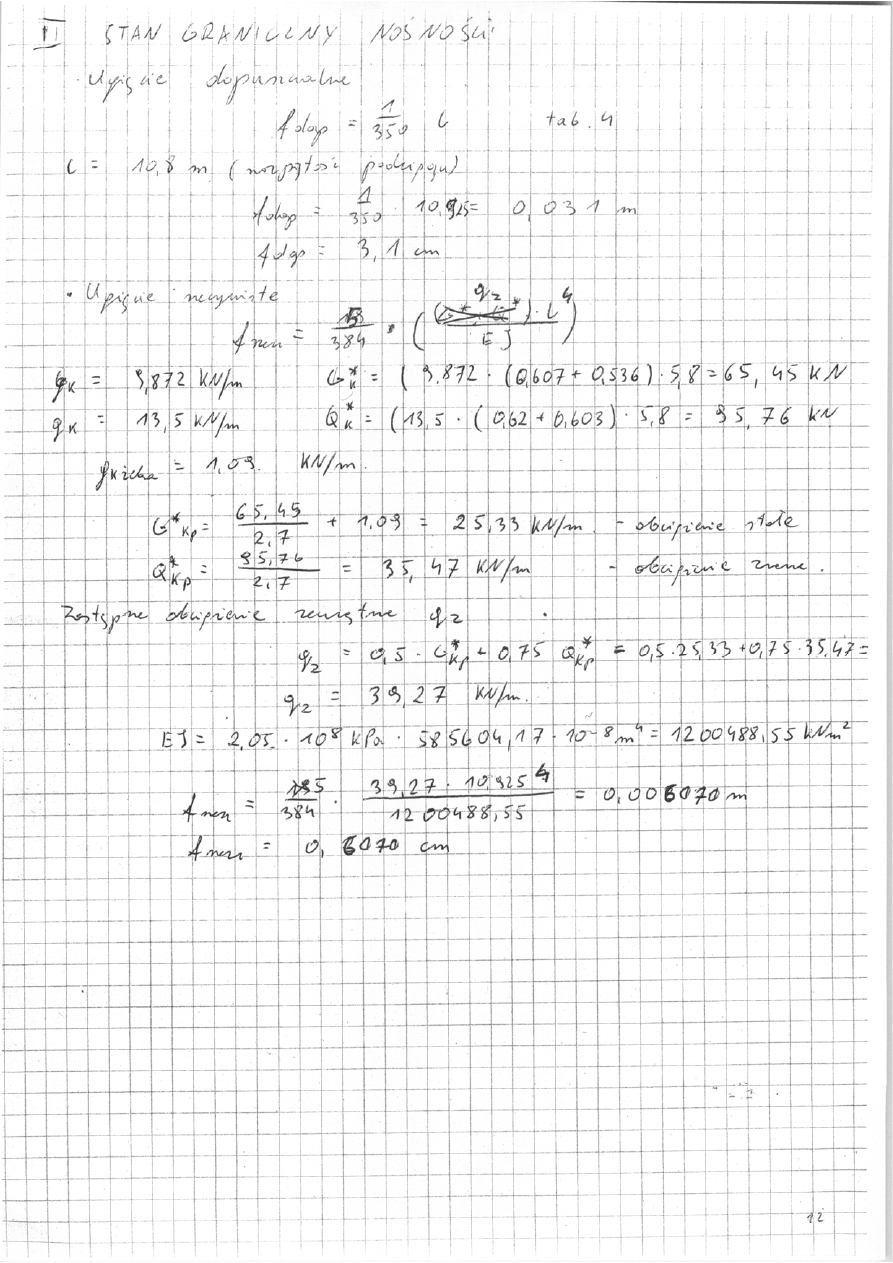 II STAN GRANICZNY NOŚNOŚCI
· Ugięcie dopuszczalne
f dop = 1/350 L tab. 4
L = 10,8 m (rozpiętość podciągu)
f dop = 1/350 · 10,925 = 0,031 m
f dop = 3,1 cm
· Ugięcie rzeczywiste
f rzecz = 5/384 · (q2 · L^4 / EJ)
gk = 9,872 KN/m G*k = (9,872 · (0,607 + 0,536) · 5,8 = 65,45 KN
qk = 13,5 KN/m Q*k = (13,5 · (0,62 + 0,603) · 5,8 = 95,76 KN
gk żebra = 1,09 KN/m.
G*kp = 65,45/2,7 + 1,09 = 25,33 KN/m - obciążenie stałe
Q*kp = 95,76/2,7 = 35,47 KN/m - obciążenie zmienne.
Zastępne obciążenie zewnętrzne q2
q2 = 0,5 · G*kp + 0,75 Q*kp = 0,5 · 25,33 + 0,75 · 35,47 =
q2 = 39,27 KN/m.
EJ = 2,05 · 10^8 kPa · 585604,17 · 10^-8 m^4 = 1200488,55 kNm^2
f rzecz = 5/384 · 39,27 · 10,925^4 / 1200488,55 = 0,006070 m
f rzecz = 0,6070 cm
12